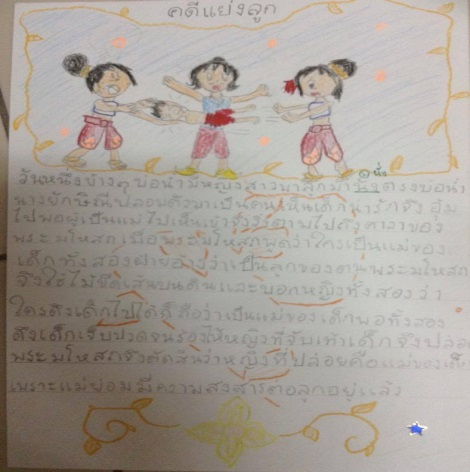 คดีแย่งลูก
วันหนึ่งข้างๆบ่อน้ำมีหญิงสาวพาลูกมานั่งตรงบ่อน้ำ
นางยักษิณีปลอมตัวมาเป็นคนเห็นเด็กน่ารักจึงอุ้ม
ไปพอผู้เป็นแม่ไปเห็นเข้าจึงวิ่งตามไปถึงศาลาของ
พระมโหสถเมื่อพระมโหสถพูดว่าใครเป็นแม่ของ
เด็กทั้งสองฝ่ายอ้างว่าเป็นลูกของตนพระมโหสถ
จึงใช้ไม้ขีดเส้นบนดินและบอกหญิงทั้งสองว่า
ใครดึงเด็กไปได้ก็ถือว่าเป็นแม่ของเด็กพอทั้งสอง
ดึงเด็กเจ็บปวดจนร้องไห้หญิงที่จับเท้าเด็กจึงปล่อย
พระมโหสถจึงตัดสินว่าหญิงที่ปล่อยคือแม่ของเด็ก
เพราะแม่ย่อมมีความสงสารต่อลูกอยู่แล้ว